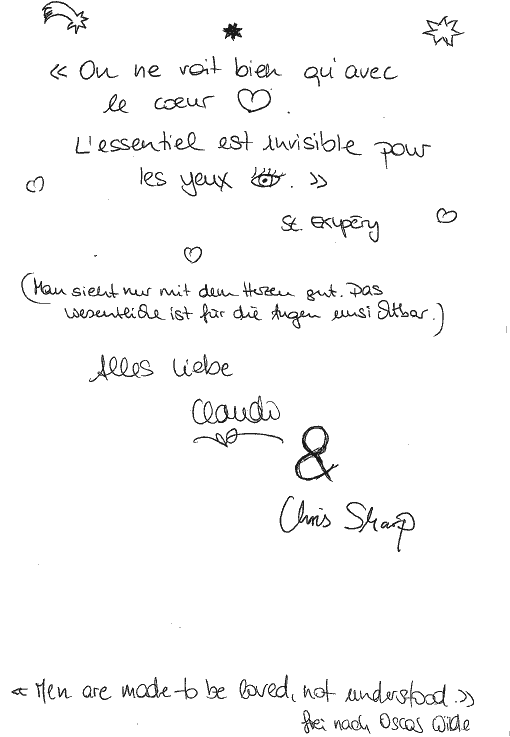 « On ne voit bien qu'avec
le coeur
L'essentiel est invisible pour
les yeux . »
St. Exupéry
(Man sieht nur mit dem Herzen gut. Das
wesentliche ist für die Augen unsichtbar.)
Alles Liebe
Claudi
&
Chris Sharp
« Men are made to be loved, not understood. »
frei nach Oscar Wilde